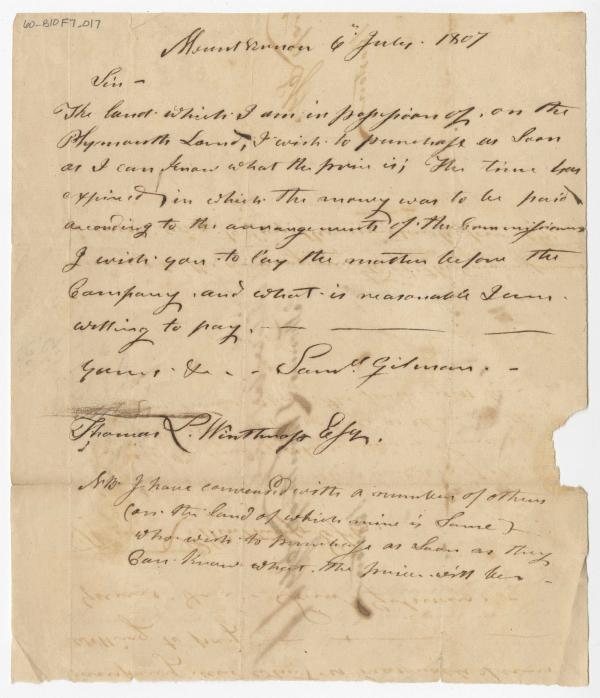 60-B10F7-017
Mount Vernon 6th July. 1807
Sir -
The land which I am in possession of, on the
Plymouth Land, I wish to purchase as soon
as I can know what the price is; The time has
expired, in which the money was to be paid
according to the arrangements of the Commissioners
I wish you to lay the matter before the
Company and what is reasonable I am
willing to pay. -
Yours &c - Saml. Gilman. -
Thomas L. Winthrop Esq.
NB. I have conversed with a number of others
(on the land of which mine is Same)
who wish to purchase as soon as they
Can Know what the price will be -